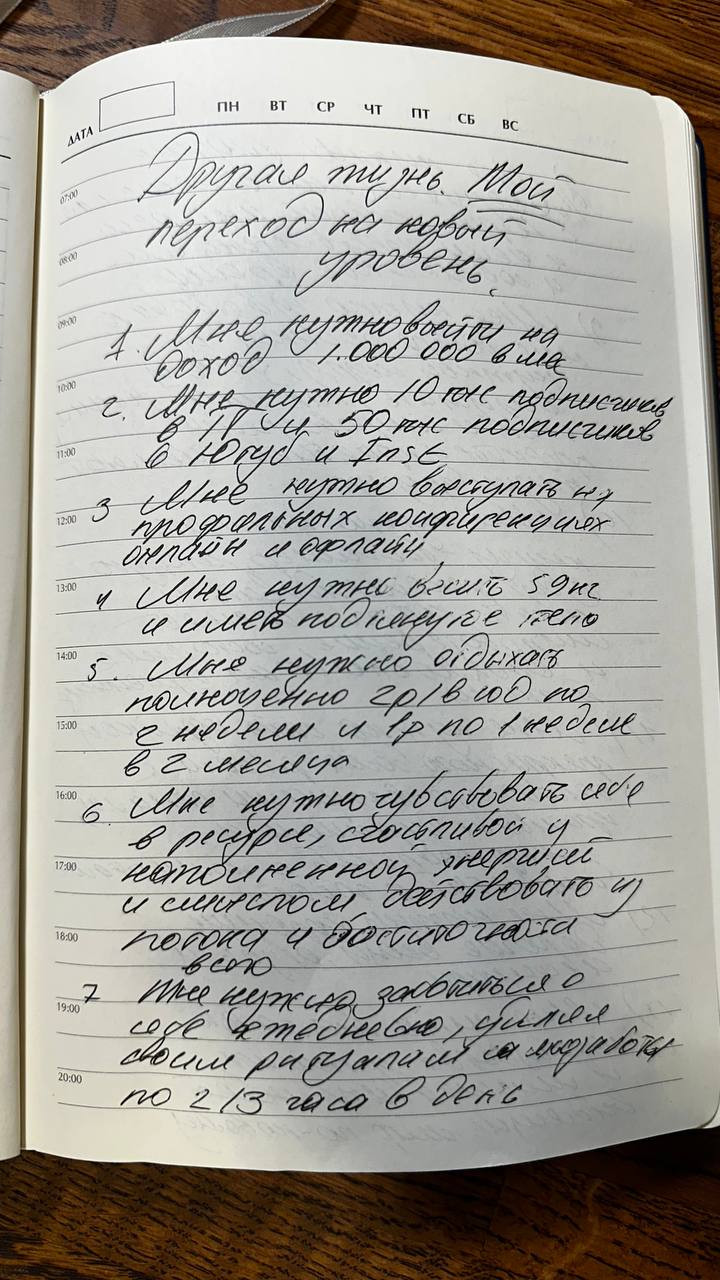 ДАТА ПН ВТ СР ЧТ ПТ СБ ВС
07:00
Другая жизнь. Мой
переход на новый
08:00
уровень.
09:00
1. Мне нужно выйти на
доход 1.000 000 в мес
10:00
2. Мне нужно 10 тыс подписчиков
в ТГ и 50 тыс подписчиков
11:00
в Ютуб и Inst
3 Мне нужно выступать на
12:00
профильных конференциях
онлайн и офлайн
13:00
4 Мне нужно весить 59 кг
и иметь подтянутое тело
14:00
5. Мне нужно отдыхать
полноценно 2р/в год по
15:00
2 недели и 1р по 1 неделе
в 2 месяца
16:00
6. Мне нужно чувствовать себя
в ресурсе, счастливой и
17:00
наполненной энергией
и смыслом действовать из
18:00
потока и достаточности
всего
7 Мне нужно заботиться о
19:00
себе ежедневно,
своим ритуалам
20:00
по 2/3 часа в день